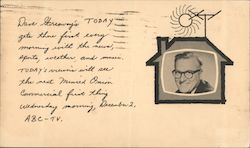 Dave Garroway's TODAY
gets things first every
morning with the news,
sports, weather and music.
TODAY's viewers will see
the next Minard Onion
Commercial first thing
Wednesday morning, December 2,
ABC-TV.